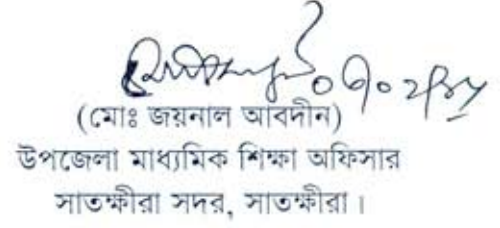 (মোঃ জয়নাল আবদীন)
উপজেলা মাধ্যমিক শিক্ষা অফিসার
সাতক্ষীরা সদর, সাতক্ষীরা।